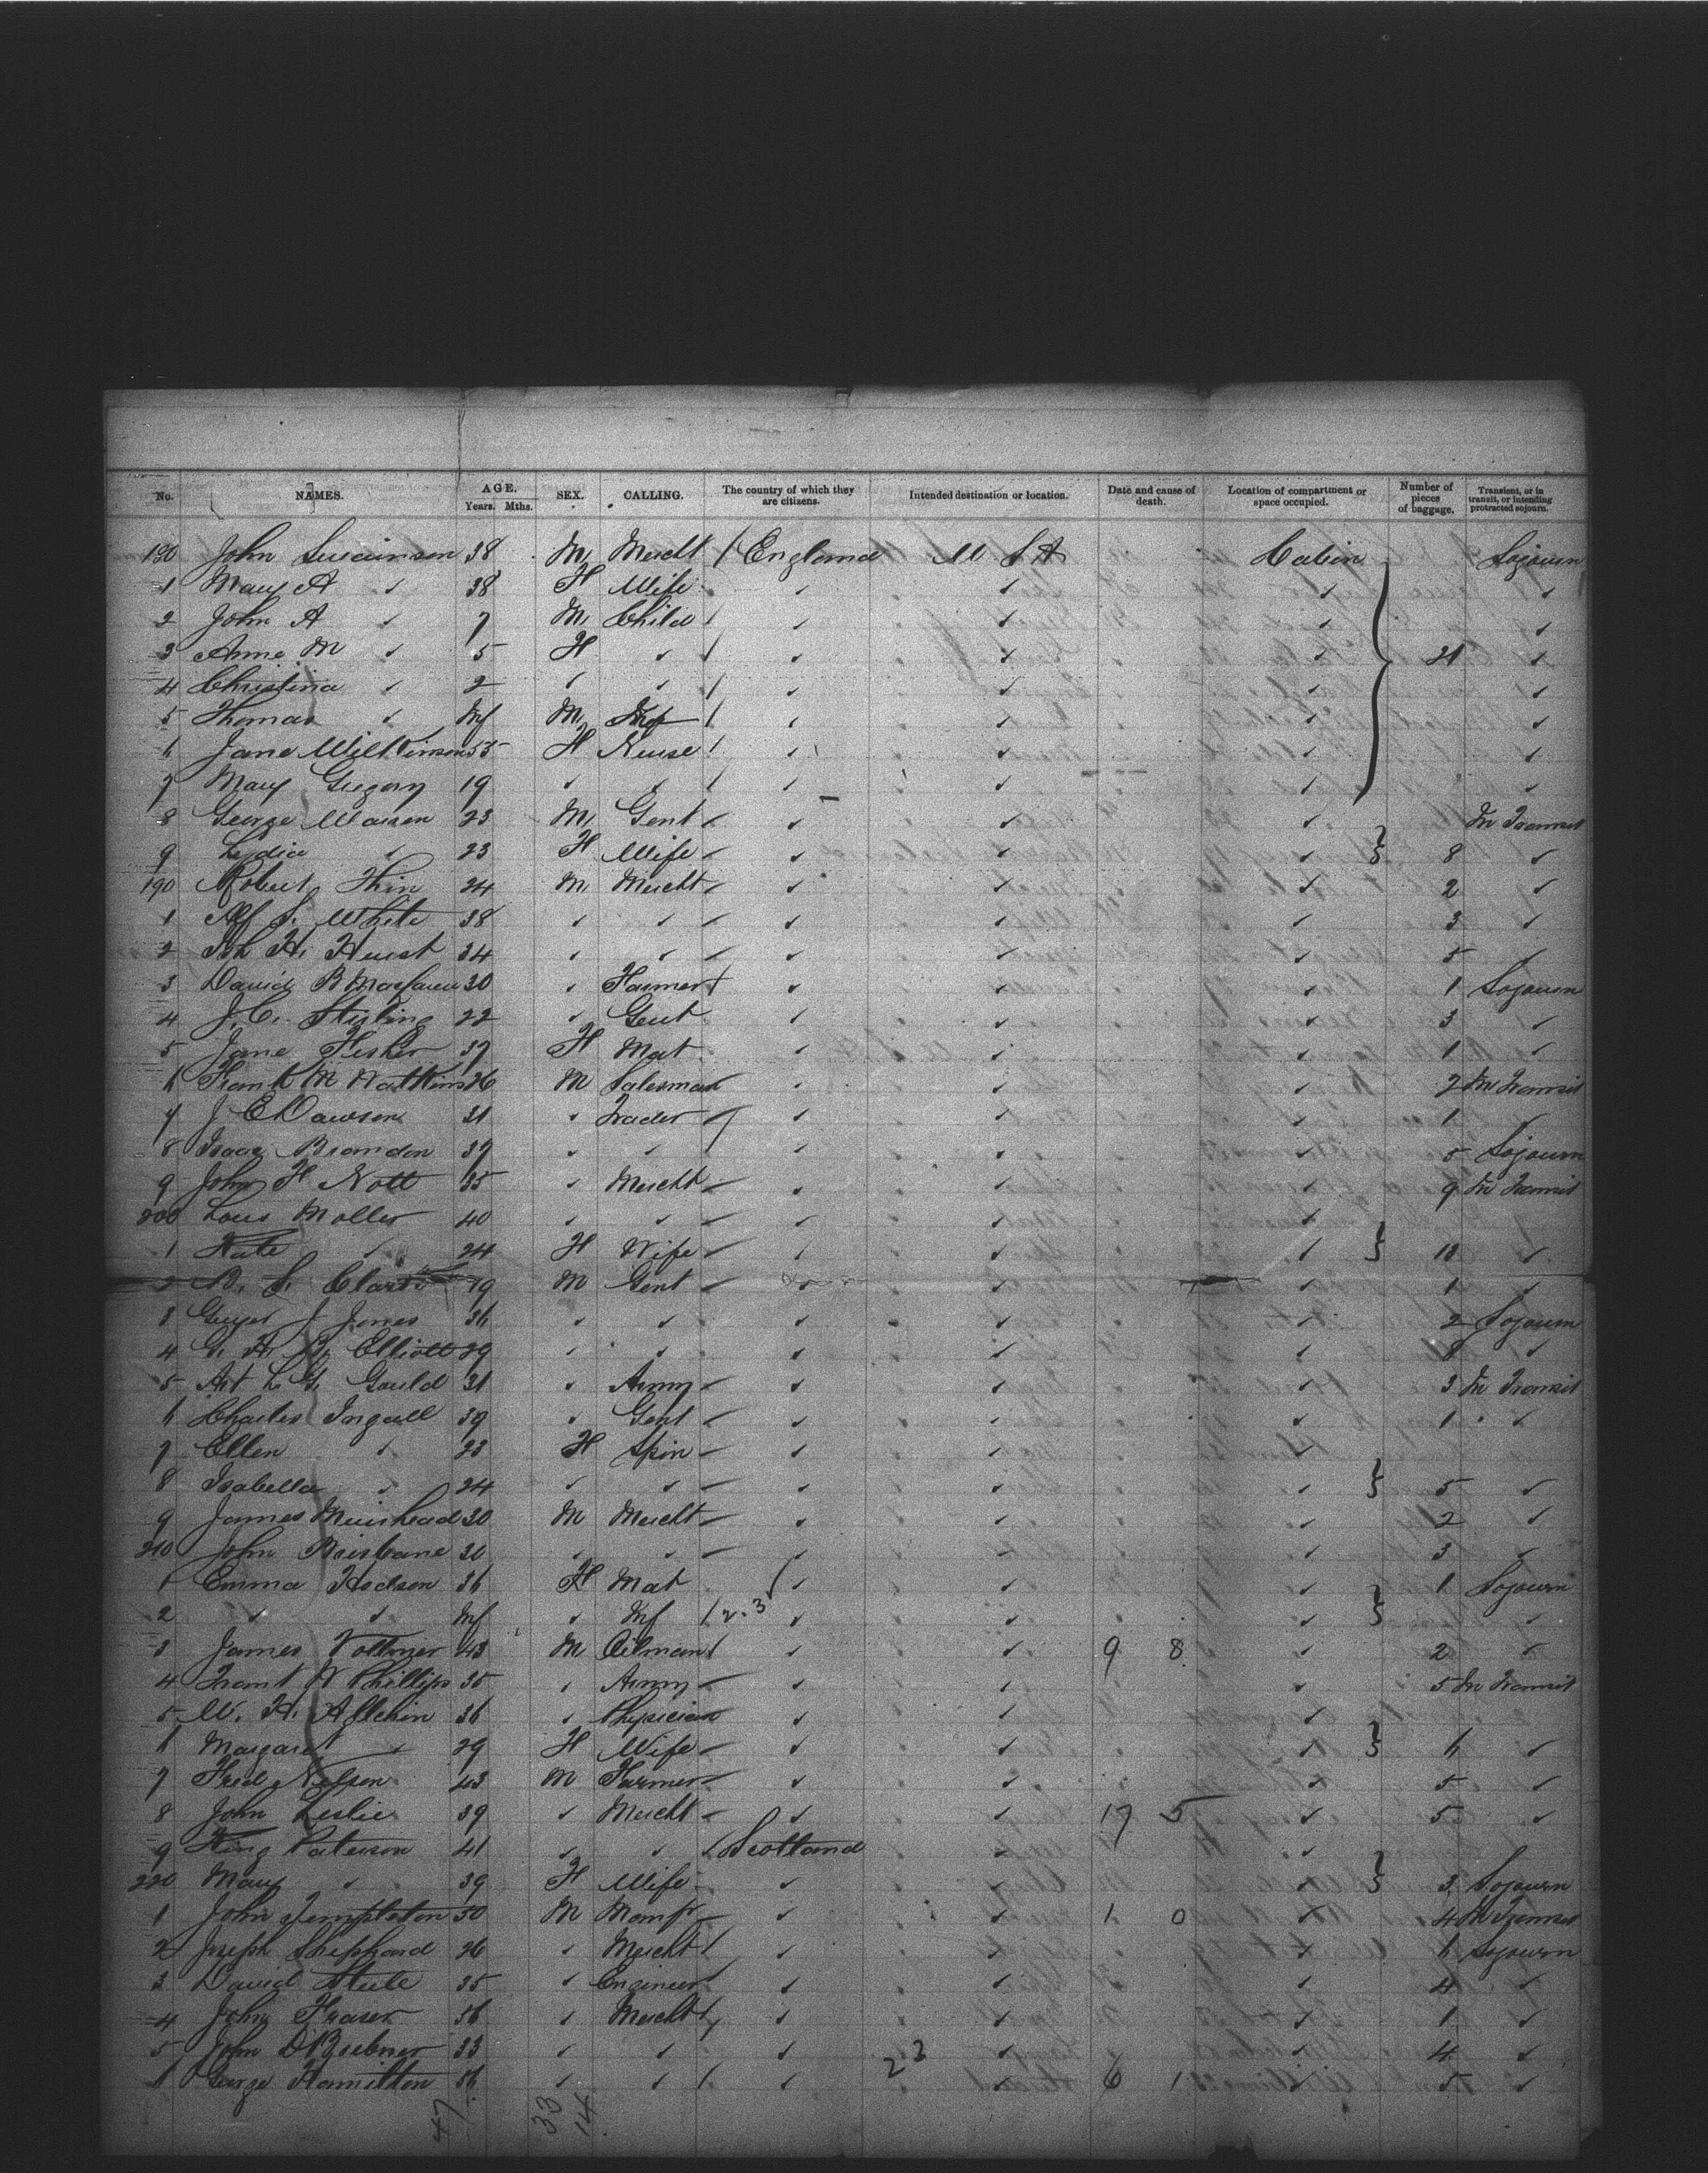 No. NAMES. AGE. Years. Mths. SEX. CALLING. The country of which they are citizens. Intended destination or location. Date and cause of death. Location of compartment or space occupied. Number of pieces of baggage. Transient, or in transit, or intending protracted sojourn.
180 John 38 M Mercht / England U S A Cabin Sojourn
1 Mary A ✓ 38 F Wife ✓ ✓ ✓ ✓
2 John A ✓ 7 M Child / ✓ ✓ ✓ ✓
3 Anne M ✓ 5 F ✓ / ✓ ✓ ✓ 21 ✓
4 Christina ✓ 2 ✓ ✓ / ✓ ✓ ✓ ✓
5 Thomas ✓ Inf M Inf / ✓ ✓ ✓ ✓
6 Jane Wilkinson 55 F Nurse / ✓ ✓ ✓ ✓
7 Mary Gregory 19 ✓ ✓ / ✓ ✓ ✓ ✓
8 George 23 M Gent ✓ ✓ ✓ In Transit
9 Lydia ✓ 23 F Wife ✓ ✓ ✓ 8 ✓
190 Robert Thin 24 M Mercht ✓ ✓ ✓ 2 ✓
1 Alf S. White 38 ✓ ✓ ✓ ✓ ✓ 3 ✓
2 H. Hurst 34 ✓ ✓ ✓ ✓ ✓ 5 ✓
3 David B 30 ✓ Farmer ✓ ✓ ✓ 1 Sojourn
4 J. C. Stirling 22 ✓ Gent ✓ ✓ ✓ 3 ✓
5 Jane Fisher 37 F Mat ✓ ✓ ✓ 1 ✓
6 Frank M Watkins 26 M Salesman ✓ ✓ ✓ 2 In Transit
7 J E Dawson 31 ✓ Trader ✓ ✓ ✓ 1 ✓
8 Isaac Brandon 37 ✓ ✓ ✓ ✓ ✓ 5 Sojourn
9 John H Nott 35 ✓ Mercht ✓ ✓ ✓ 9 In Transit
200 Louis Moller 40 ✓ ✓ ✓ ✓ ✓
1 Kate ✓ 24 F Wife ✓ ✓ ✓ 10 ✓
2 B. S. 19 M Gent ✓ ✓ 1 ✓
3 J Jones 36 ✓ ✓ ✓ ✓ ✓ 2 Sojourn
4 G. A. B. Elliott 29 ✓ ✓ ✓ ✓ ✓ 8 ✓
5 Art L. G. Gould 31 ✓ Army ✓ ✓ ✓ 3 In Transit
6 Charles Ingall 39 ✓ Gent ✓ ✓ ✓ 1 ✓
7 Ellen ✓ 23 F Spin ✓ ✓ ✓
8 Isabella ✓ 24 ✓ ✓ ✓ ✓ ✓ 5 ✓
9 James Muirhead 30 M Mercht ✓ ✓ ✓ 2 ✓
210 John Brisbane 30 ✓ ✓ ✓ ✓ ✓ 3 ✓
1 Emma Hodson 36 F Mat ✓ ✓ ✓ 1 Sojourn
2 ✓ ✓ Inf ✓ Inf / 2.3 ✓ ✓ ✓ ✓
3 James Vollmer 43 M Oilman / ✓ ✓ 9 8 ✓ 2 ✓
4 Frank W Phillips 35 ✓ Army ✓ ✓ ✓ 5 In Transit
5 W. H. Allchin 36 ✓ Physician ✓ ✓ ✓
6 Margaret ✓ 29 F Wife ✓ ✓ ✓ 6 ✓
7 Fred Nelson 43 M Farmer ✓ ✓ ✓ 5 ✓
8 John Leslie 39 ✓ Mercht ✓ ✓ 17 5 ✓ 5 ✓
9 King Paterson 41 ✓ ✓ / Scotland ✓ ✓
220 Mary ✓ 39 F Wife ✓ ✓ ✓ 3 Sojourn
1 John Templeton 50 M Manfr ✓ ✓ 1 0 ✓ 4 In Transit
2 Joseph Shephard 26 ✓ Mercht / ✓ ✓ ✓ 6 Sojourn
3 David Steele 35 ✓ Engineer ✓ ✓ ✓ 4 ✓
4 John Fraser 56 ✓ Mercht / ✓ ✓ ✓ 1 ✓
5 John D Brebner 33 ✓ ✓ ✓ 22 ✓ ✓ 4 ✓
6 George Hamilton 56 ✓ ✓ / ✓ ✓ 6 1 ✓ 5 ✓
47 33 14